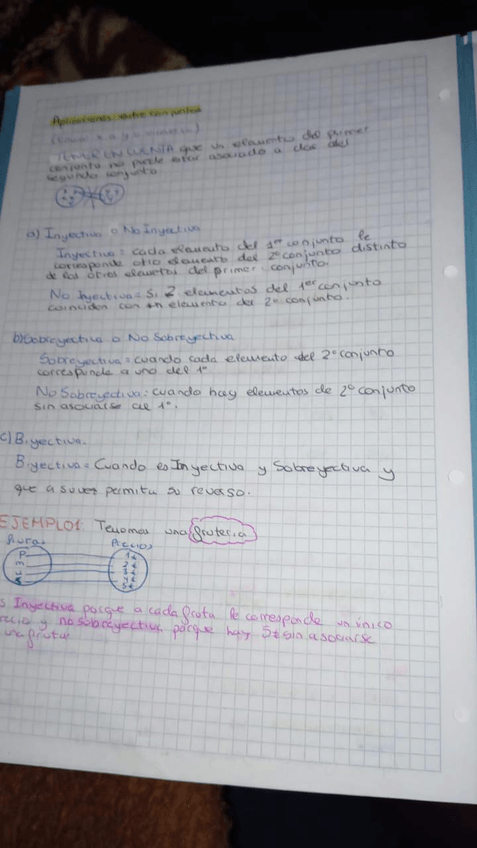 Aplicaciones entre conjuntos
TENER EN CUENTA que un elemento del primer
conjunto no puede estar asociado a dos del
segundo conjunto
a) Inyectiva o No Inyectiva
Inyectiva = cada elemento del 1er conjunto le
corresponde otro elemento del 2º conjunto distinto
de los otros elementos del primer conjunto.
No Inyectiva = Si 2 elementos del 1er conjunto
coinciden con un elemento del 2º conjunto.
b) Sobreyectiva o No Sobreyectiva
Sobreyectiva = cuando cada elemento del 2º conjunto
corresponde a uno del 1º
No Sobreyectiva: cuando hay elementos de 2º conjunto
sin asociarse al 1º.
c) Biyectiva.
Biyectiva = Cuando es Inyectiva y Sobreyectiva y
que a su vez permita su reverso.
EJEMPLO1 Tenemos una frutería
Frutas Precios
P 1€
m 2€
3€
4€
5€
s Inyectiva porque a cada fruta le corresponde un único
recio y no sobreyectiva porque hay 5€ sin asociarse
una fruta